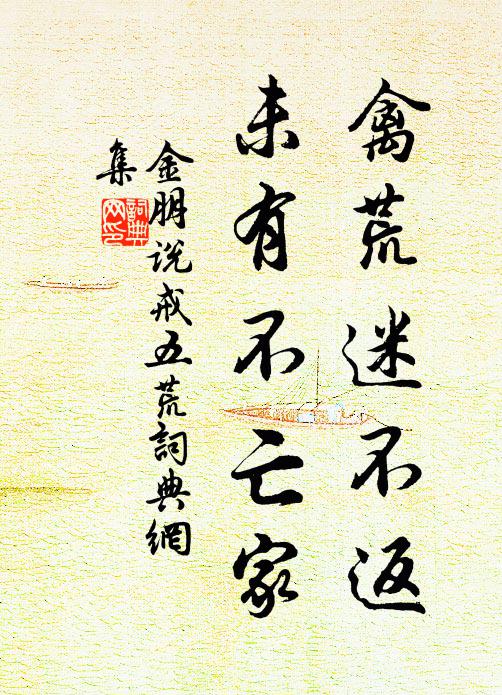 禽荒迷不返
未有不亡家
金朋说戒五荒詞典網
集
詞典
网印